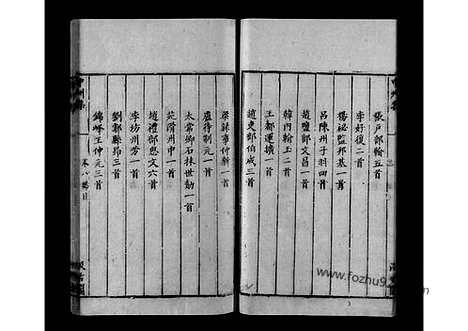 張戶部翰五首
李好復二首
楊祕監邦基一首
呂陳州子羽四首
趙鹽部文昌一首
韓內翰玉二首
王都運擴一首
趙吏部伯成三首
梁錄事仲新一首
盧待制元一首
太常卿石抹世勣一首
苑滑州中一首
趙禮部思文六首
李坊州芳一首
劉鄧縣昂三首
錦峰王仲元三首
卷八
www.fozhu9